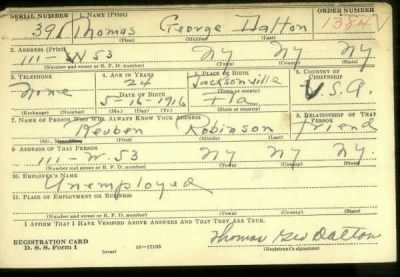 SERIAL NUMBER 1. NAME (Print) ORDER NUMBER
391 Thomas George Dalton 1384
(First) (Middle) (Last)
2. ADDRESS (Print)
111-W 53 NY NY NY
(Number and street or R. F. D. number) (Town) (County) (State)
3. TELEPHONE 4. AGE IN YEARS 5. PLACE OF BIRTH 6. COUNTRY OF CITIZENSHIP
None 24 Jacksonville U.S.A.
DATE OF BIRTH (Town or county)
5-16-1916 Fla
(Exchange) (Number) (Mo.) (Day) (Yr.) (State or country)
7. NAME OF PERSON WHO WILL ALWAYS KNOW YOUR ADDRESS 8. RELATIONSHIP OF THAT PERSON
Reuben Robinson friend
(First) (Middle) (Last)
9. ADDRESS OF THAT PERSON
111-W. 53 NY NY NY.
(Number and street or R. F. D. number) (Town) (County) (State)
10. EMPLOYER'S NAME
Unemployed
11. PLACE OF EMPLOYMENT OR BUSINESS
(Number and street or R. F. D. number) (Town) (County) (State)
I AFFIRM THAT I HAVE VERIFIED ABOVE ANSWERS AND THAT THEY ARE TRUE.
REGISTRATION CARD
D. S. S. Form 1 (over) 16-17105 Thomas Geo Dalton
(Registrant's signature)